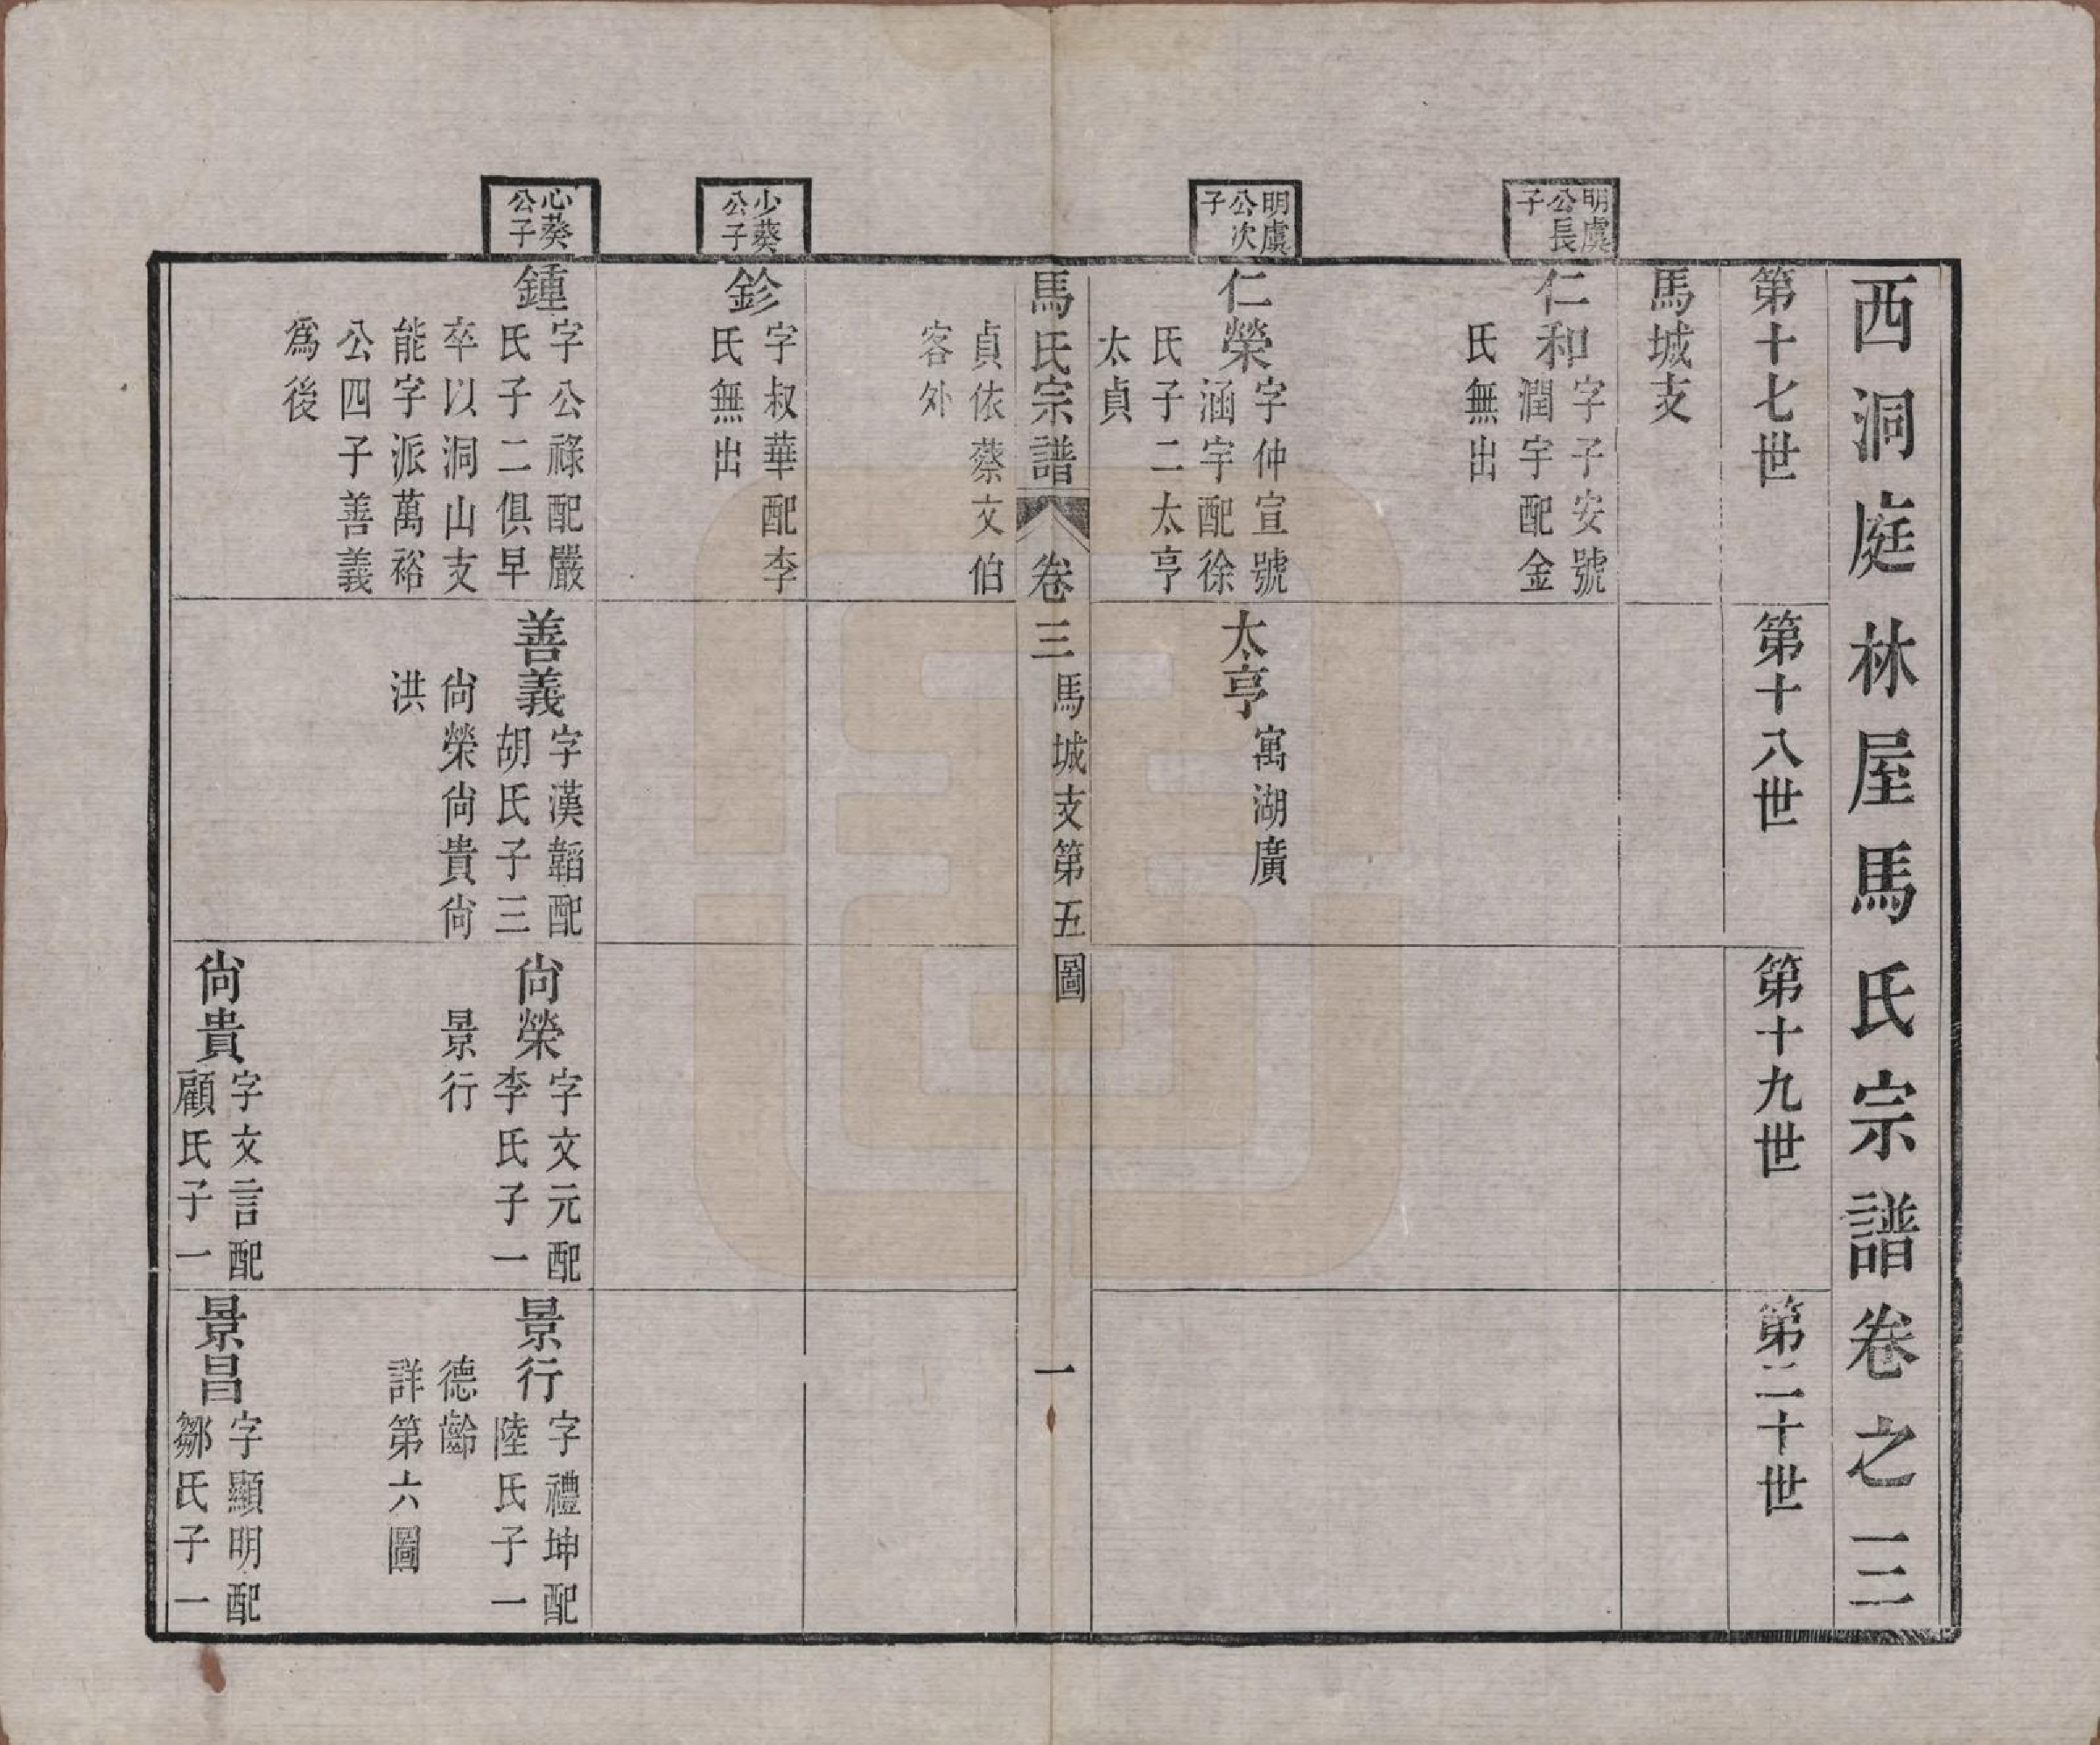 西洞庭林屋馬氏宗譜卷之三
第十七世
第十八世
第十九世
第二十世
馬城支
明虞
公長
子
仁和
字子安號
潤宇配金
氏無出
明虞
公次
子
仁榮
字仲宣號
涵宇配徐
氏子二太亨
太貞
太亨
寓湖廣
馬氏宗譜
卷三
馬城支第五圖
一
貞依蔡文伯
客外
少葵
公子
鉁
字叔華配李
氏無出
心葵
公子
鍾
字公祿配嚴
氏子二俱早
卒以洞山支
能字派萬裕
公四子善義
爲後
善義
字漢韜配
胡氏子三
尙榮尙貴尙
洪
尙榮
字文元配
李氏子一
景行
景行
字禮坤配
陸氏子一
德齡
詳第六圖
尙貴
字文言配
顧氏子一
景昌
字顯明配
鄒氏子一